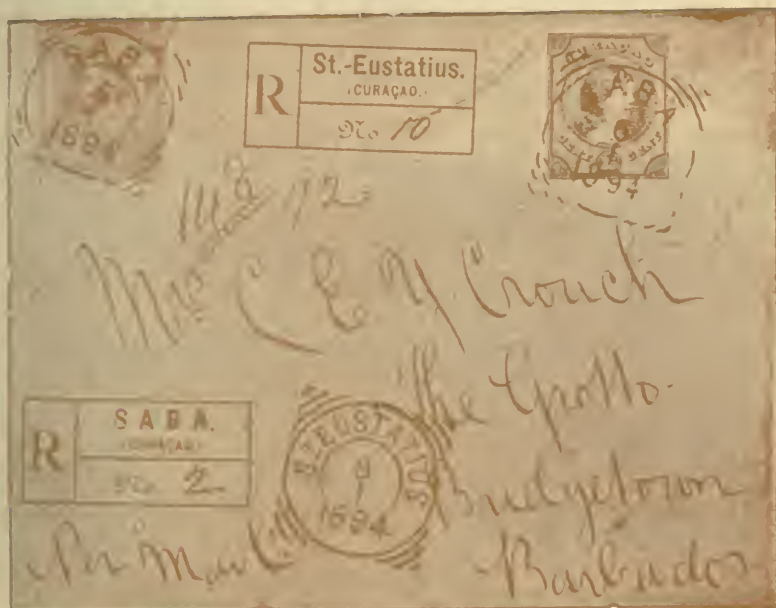 SABA
1894
R
St.-Eustatius.
(CURAÇAO.)
No 10
SABA
1894
No 12
Mrs C E Y Crouch
The Grotto.
Bridgetown
Barbados
R
SABA.
(CURAÇAO.)
No 2
ST EUSTATIUS
9
1
1894
Per Mail